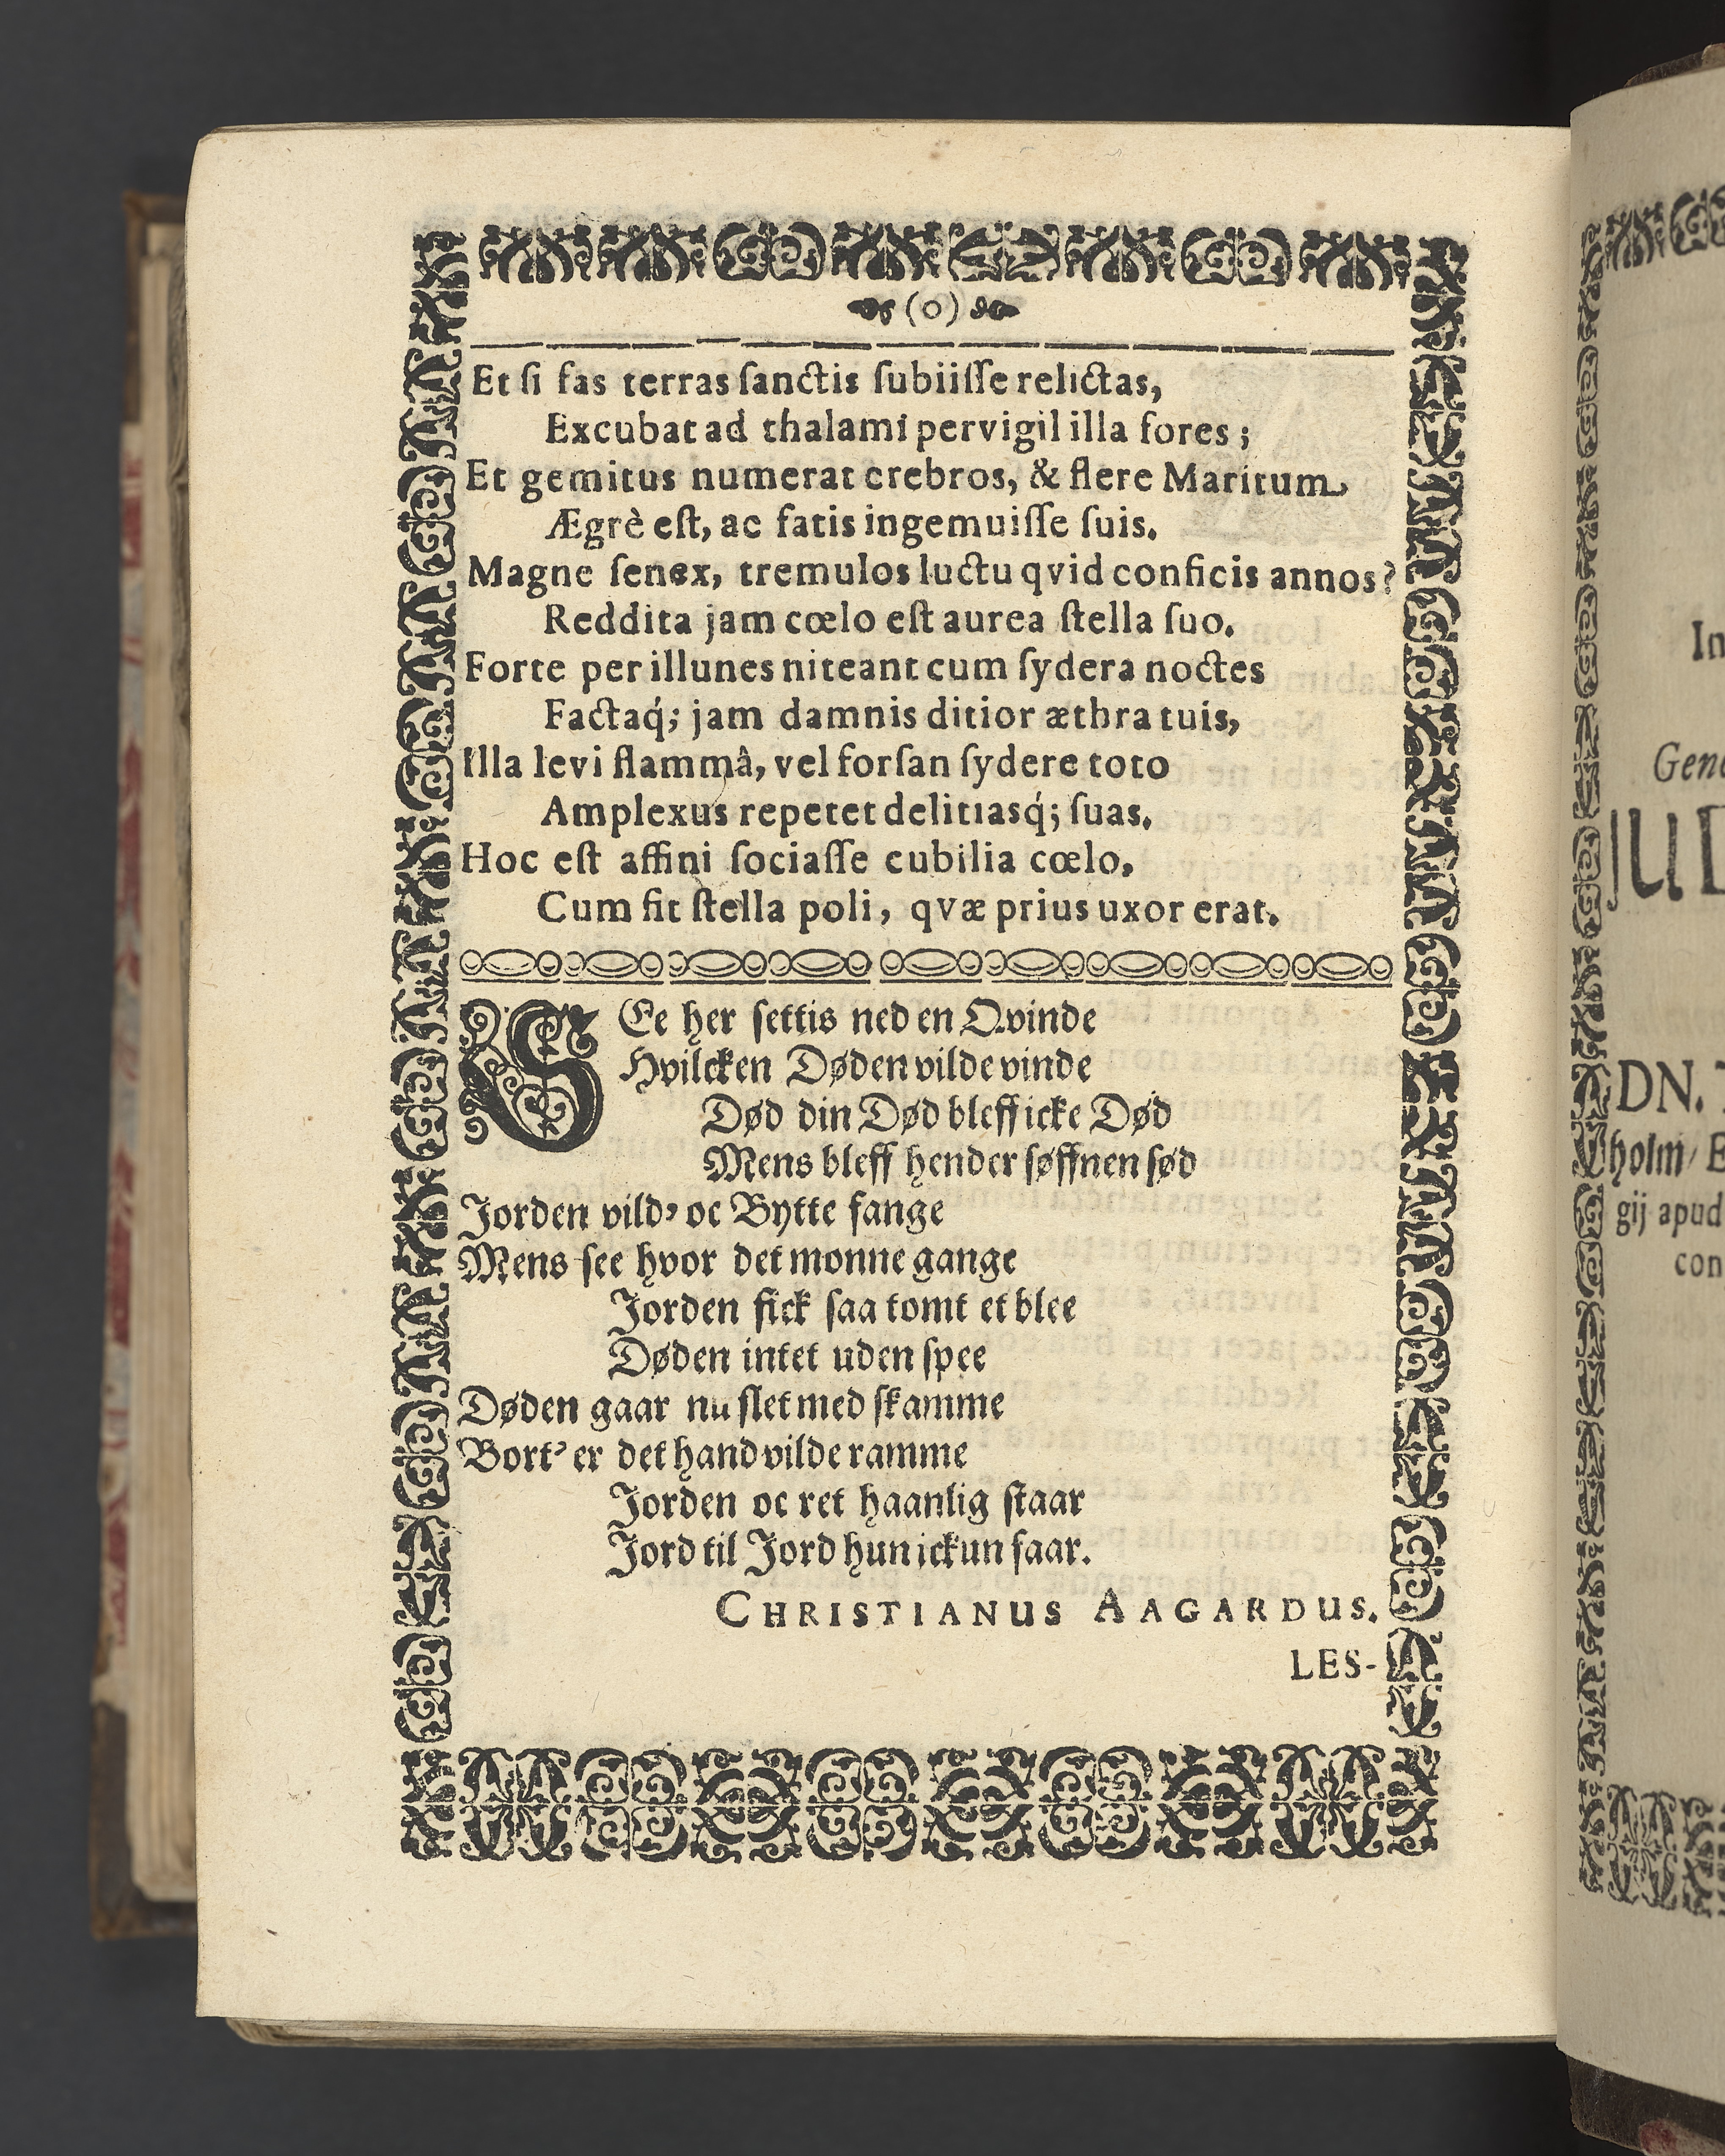 (o)
Et ſi fas terras ſanctis ſubiiſſe relictas,
Excubat ad thalami pervigil illa fores ;
Et gemitus numerat crebros, & flere Maritum
Ægrè eſt, ac fatis ingemuiſſe ſuis.
Magne ſenex, tremulos luctu qvid conficis annos?
Reddita jam cœlo eſt aurea ſtella ſuo.
Forte per illunes niteant cum ſydera noctes
Factaq́; jam damnis ditior æthra tuis,
Illa levi flammâ, vel forſan ſydere toto
Amplexus repetet delitiasq́; ſuas.
Hoc eſt affini ſociaſſe cubilia cœlo,
Cum fit ſtella poli, qvæ prius uxor erat.
SEe her ſettis ned en Qvinde
Hvilcken Døden vilde vinde
Død din Død bleff icke Død
Mens bleff hender ſøffnen ſød
Jorden vild' oc Bytte fange
Mens ſee hvor det monne gange
Jorden fick ſaa tomt et blee
Døden intet uden ſpee
Døden gaar nu ſlet med ſkamme
Bort' er det hand vilde ramme
Jorden oc ret haanlig ſtaar
Jord til Jord hun ickun faar.
CHRISTIANUS AAGARDUS.
LES-
In
Gene
JUD
DN.
holm/ E
gij apud
con